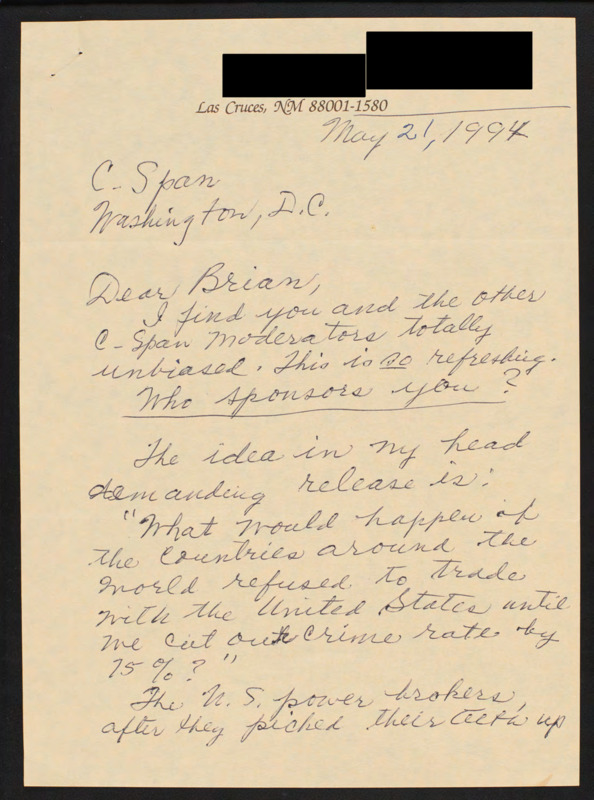 Las Cruces, NM 88001-1580
May 21, 1994
C-Span
Washington, D.C.
Dear Brian,
I find you and the other
C-Span moderators totally
unbiased. This is so refreshing.
Who sponsors you?
The idea in my head
demanding release is:
"What would happen if
the countries around the
world refused to trade
with the United States until
we cut our crime rate by
75%?"
The U.S. power brokers,
after they picked their teeth up